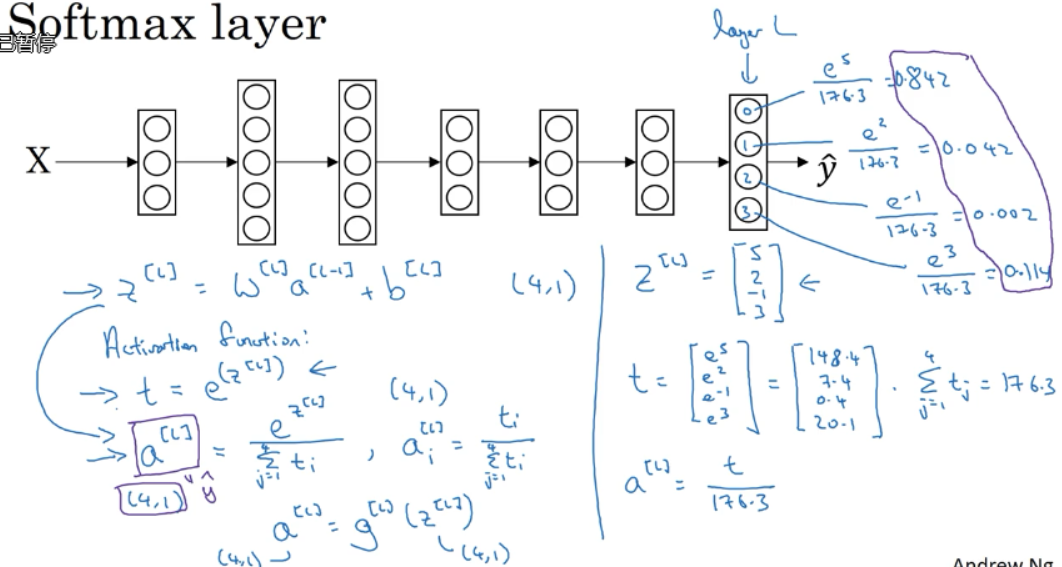 Softmax layer
已暂停
layer L
X
0
1
2
3
ŷ
e^5 / 176.3 = 0.842
e^2 / 176.3 = 0.042
e^-1 / 176.3 = 0.002
e^3 / 176.3 = 0.114
→ z^[L] = W^[L] a^[L-1] + b^[L] (4,1)
Activation function:
→ t = e^(z^[L]) ← (4,1)
→ a^[L] = e^z^[L] / ∑_{j=1}^{4} t_i , a_i^[L] = t_i / ∑_{j=1}^{4} t_i
(4,1) ŷ
a^[L] = g^[L] (z^[L])
(4,1) (4,1)
z^[L] = [5 2 -1 3] ←
t = [e^5 e^2 e^-1 e^3] = [148.4 7.4 0.4 20.1] . ∑_{j=1}^{4} t_j = 176.3
a^[L] = t / 176.3
Andrew Ng